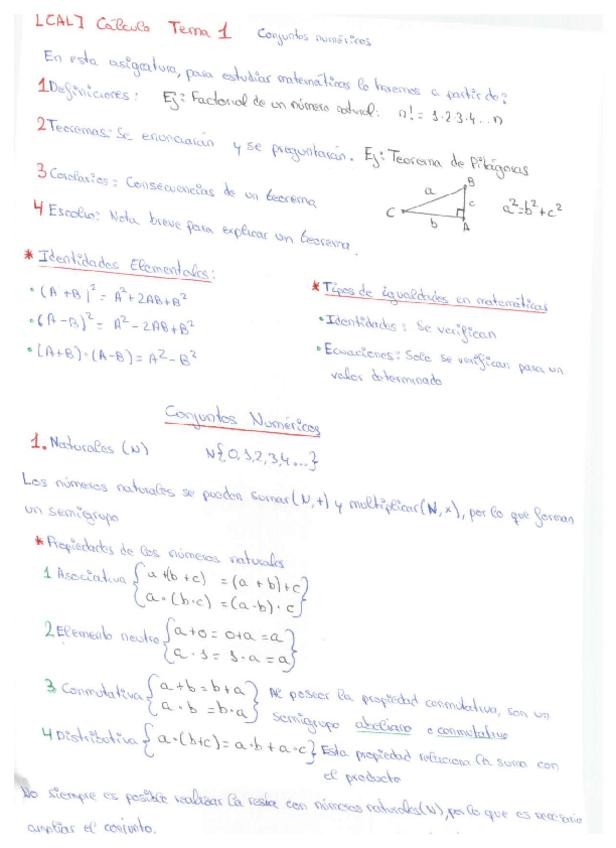 [CAL] Cálculo Tema 1 Conjuntos numéricos
En esta asignatura, para estudiar matemáticas lo haremos a partir de:
1 Definiciones: Ej: Factorial de un número natural: n! = 1·2·3·4...n
2 Teoremas: Se enunciarán y se preguntarán. Ej: Teorema de Pitágoras
3 Corolarios: Consecuencias de un teorema
4 Escolio: Nota breve para explicar un teorema.
B
a
c
C
b
A
a²=b²+c²
* Identidades Elementales:
• (A+B)² = A²+2AB+B²
• (A-B)² = A²-2AB+B²
• (A+B)·(A-B)=A²-B²
* Tipos de igualdades en matemáticas
• Identidades: Se verifican
• Ecuaciones: Solo se verifican para un
valor determinado
Conjuntos Numéricos
1. Naturales (N) N{0,1,2,3,4...}
Los números naturales se pueden sumar (N,+) y multiplicar (N,x), por lo que forman
un semigrupo
* Propiedades de los números naturales
1 Asociativa { a+(b+c) = (a+b)+c }
{ a·(b·c) = (a·b)·c }
2 Elemento neutro { a+0=0+a=a }
{ a·1=1·a=a }
3 Conmutativa { a+b=b+a } Al poseer la propiedad conmutativa, son un
{ a·b=b·a } semigrupo abeliano o conmutativo
4 Distributiva { a·(b+c)=a·b+a·c } Esta propiedad relaciona la suma con
el producto
No siempre es posible realizar la resta con números naturales (N), por lo que es necesario
ampliar el conjunto.